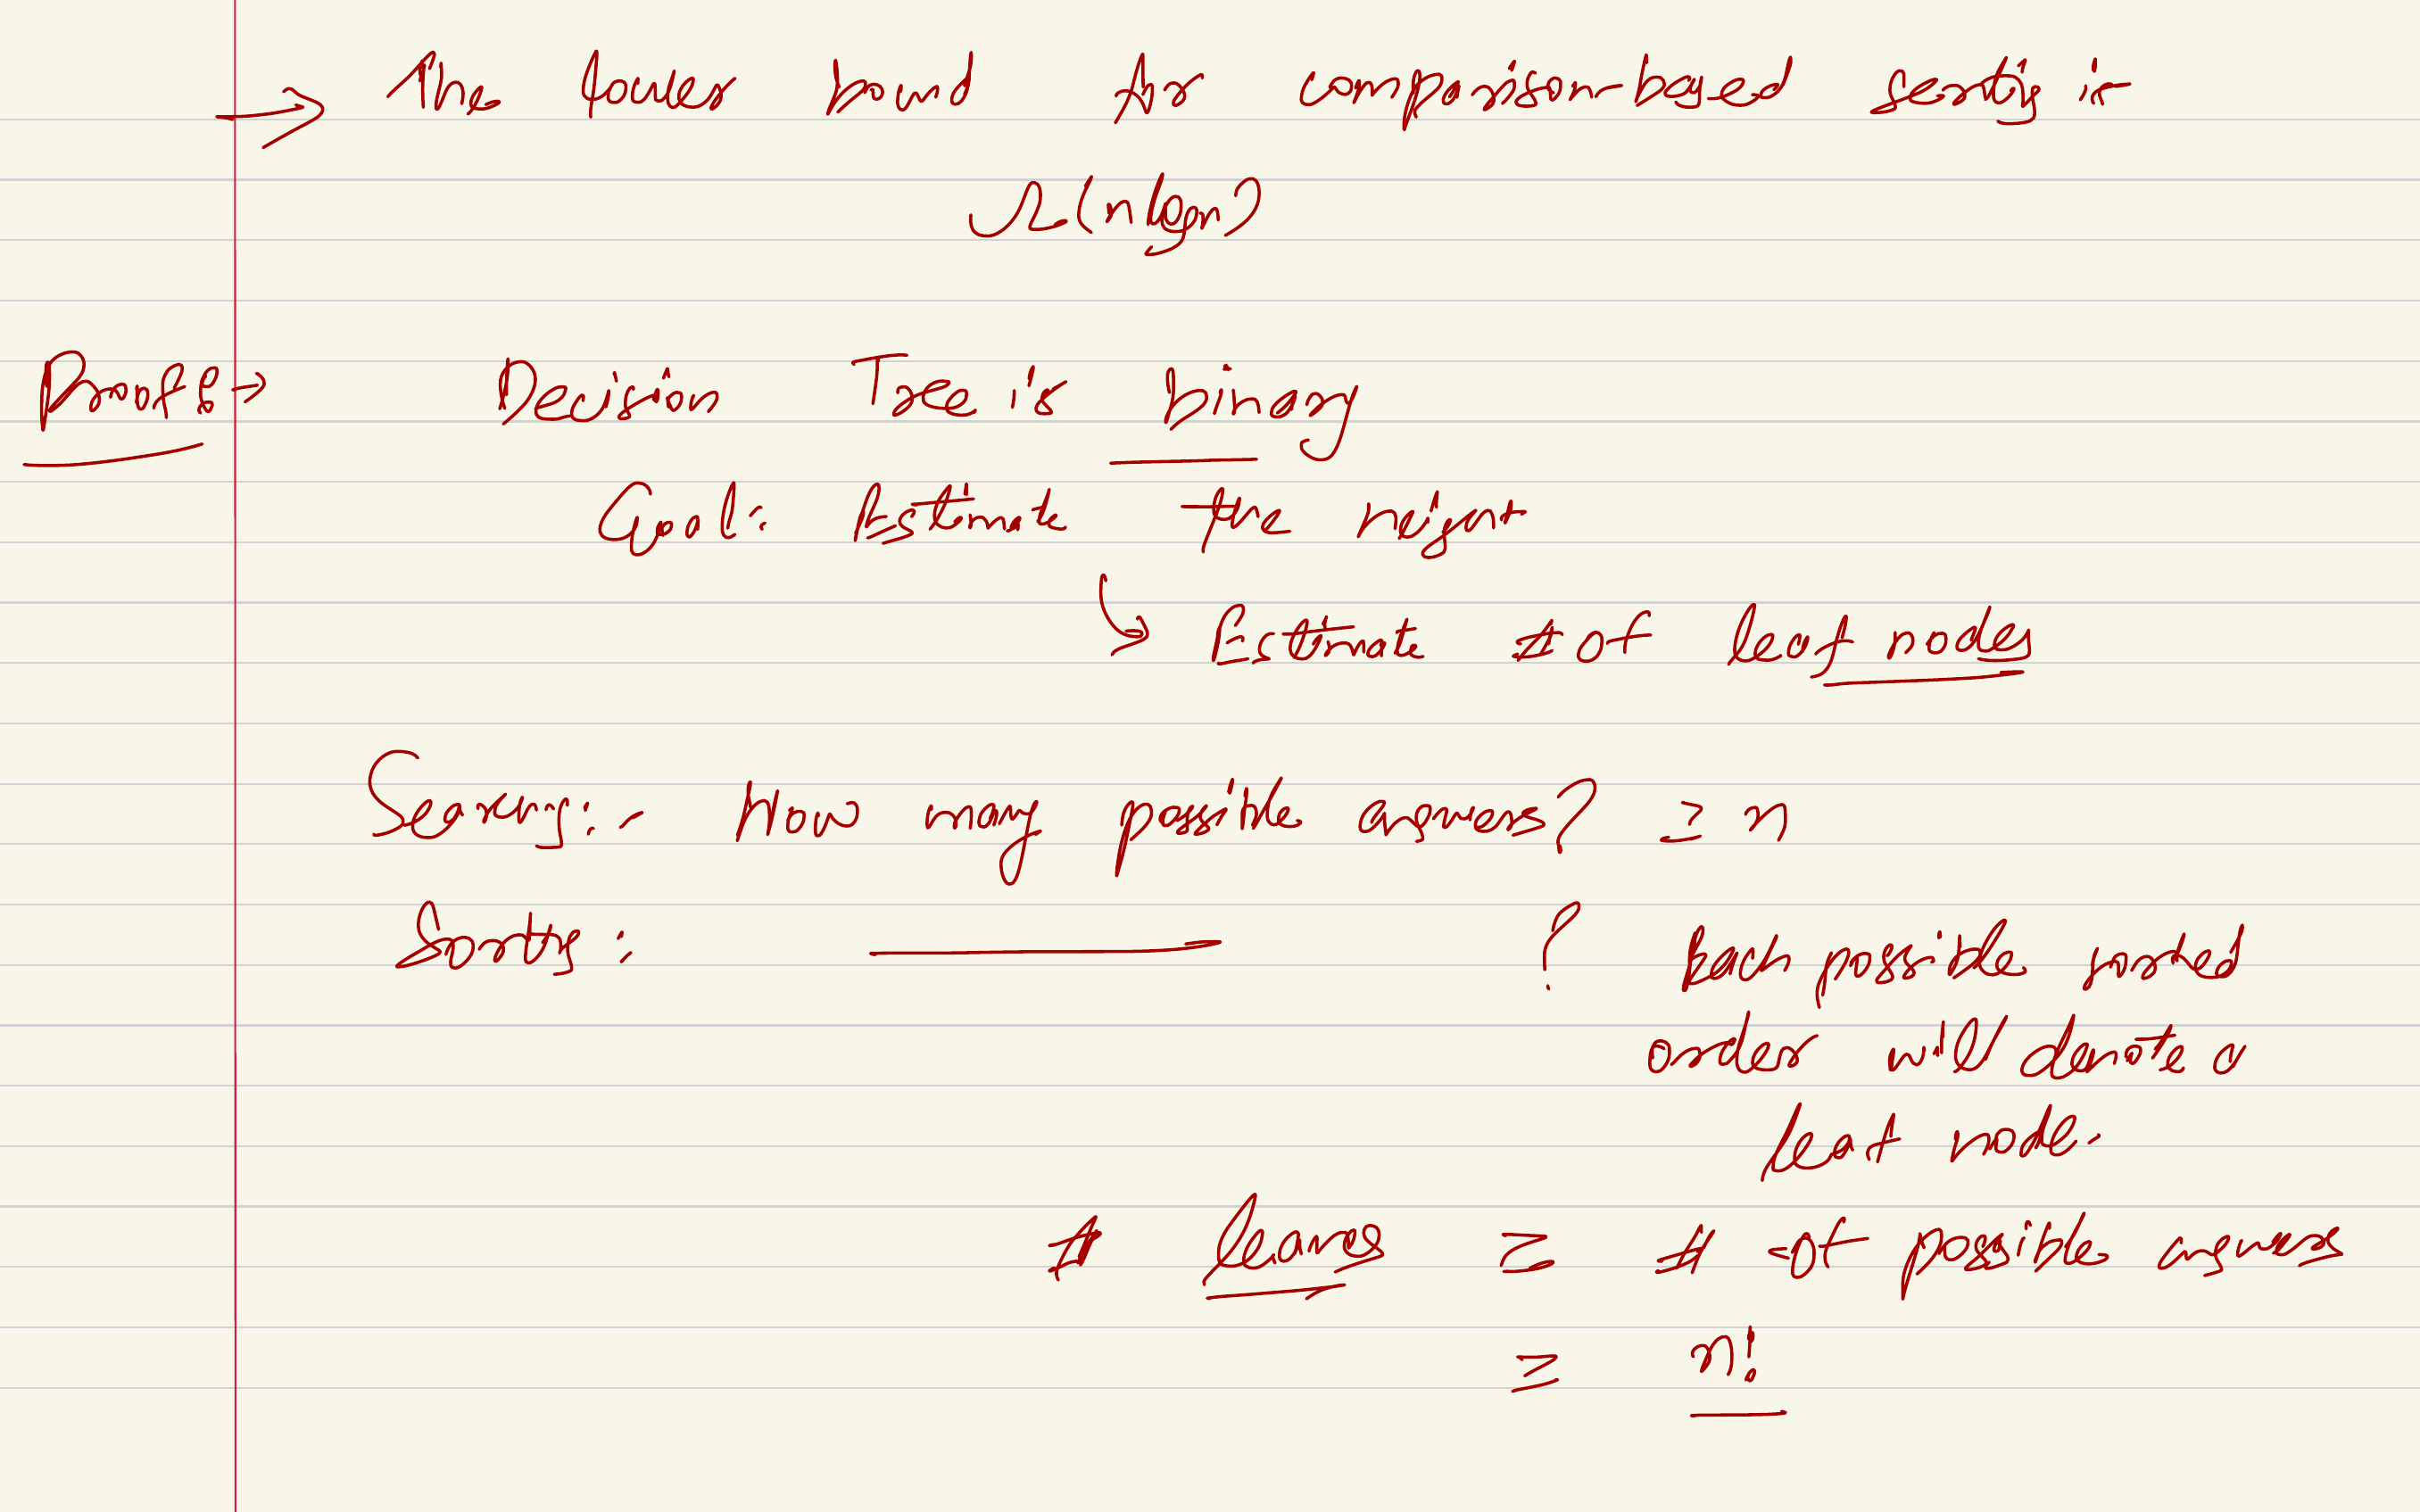 → The lower bound for comparison-based sorting is
Ω(n log n)
Proof:→ Decision Tree is binary
Goal: Estimate the height
↳ Estimate # of leaf nodes
Searching:- How many possible answers? ≥ n
Sorting: ——— ? Each possible sorted
order will denote a
leaf node.
# leaves ≥ # of possible answers
≥ n!